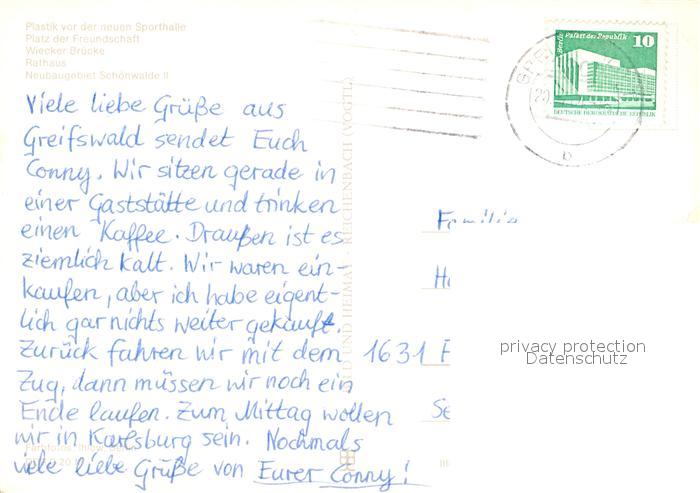 Plastik vor der neuen Sporthalle
Platz der Freundschaft
Wiecker Brücke
Rathaus
Neubaugebiet Schönwalde II
Berlin, Palast der Republik 10
DEUTSCHE DEMOKRATISCHE REPUBLIK
b
Viele liebe Grüße aus
Greifswald sendet Euch
Conny. Wir sitzen gerade in
einer Gaststätte und trinken
einen Kaffee. Draußen ist es
ziemlich kalt. Wir waren ein-
kaufen, aber ich habe eigent-
lich gar nichts weiter gekauft.
Zurück fahren wir mit dem
Zug, dann müssen wir noch ein
Ende laufen. Zum Mittag wollen
wir in Karlsburg sein. Nochmals
viele liebe Grüße von Eurer Conny!
BILD UND HEIMAT REICHENBACH (VOGTL)
Familie
1631
privacy protection
Datenschutz